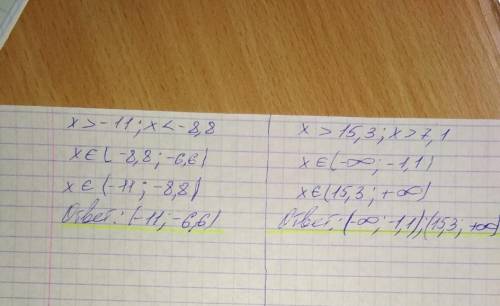 x>-11; x<-8,8
x∈(-8,8; -6,6)
x∈(-11; -8,8)
Ответ: (-11; -6,6)
x>15,3; x>7,1
x∈(-∞; -1,1)
x∈(15,3; +∞)
Ответ: (-∞; -1,1); (15,3; +∞)